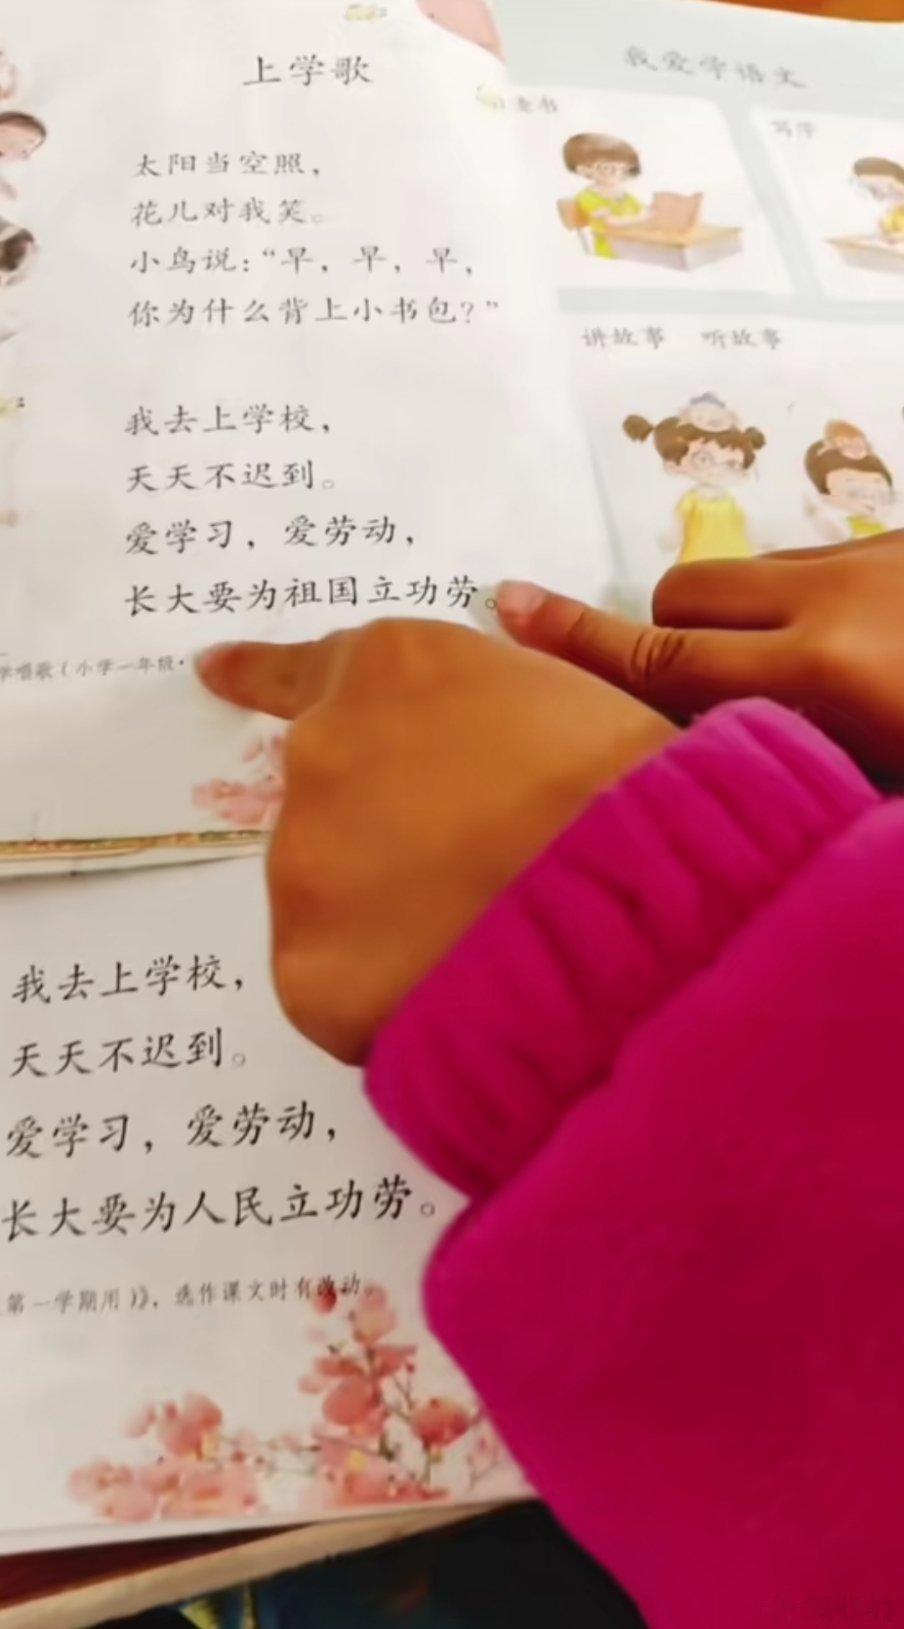 上学歌
太阳当空照，
花儿对我笑。
小鸟说：“早，早，早，
你为什么背上小书包？”
我去上学校，
天天不迟到。
爱学习，爱劳动，
长大要为祖国立功劳。
学唱歌（小学一年级·
我爱学语文
读书
写字
讲故事 听故事
我去上学校，
天天不迟到。
爱学习，爱劳动，
长大要为人民立功劳。
第一学期用）》，选作课文时有改动。